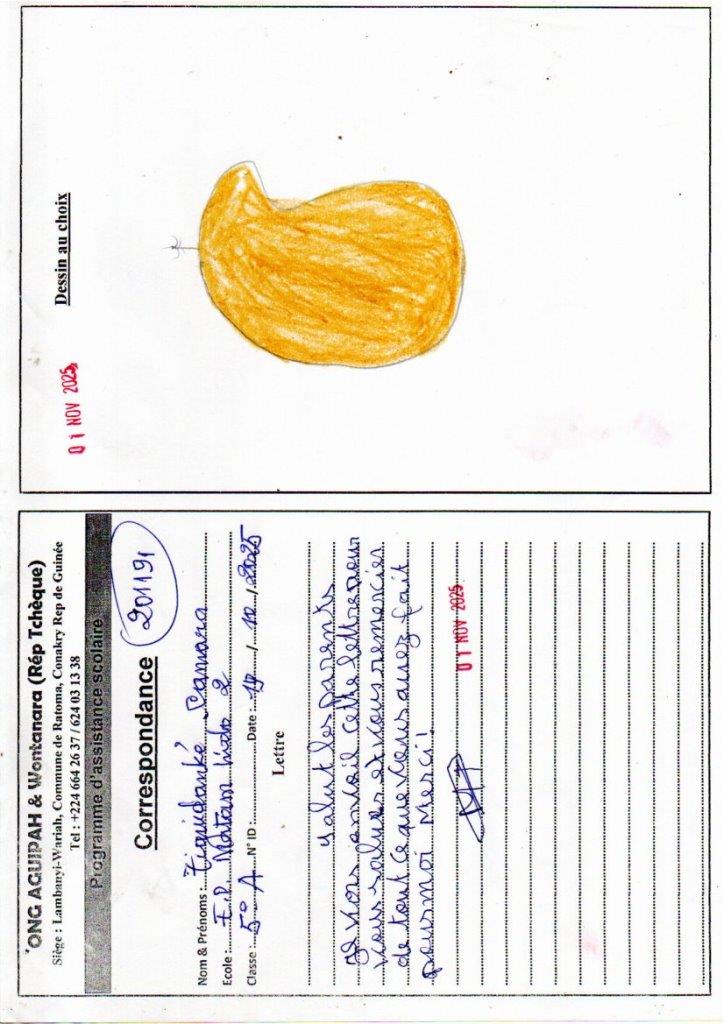 ONG AGUIPAH & Wontanara (Rép Tchèque)
Siège : Lambanyi-Wariah, Commune de Ratoma, Conakry Rep de Guinée
Tel : +224 664 26 37 / 624 03 13 38
Programme d'assistance scolaire
Correspondance
201191
Nom & Prénoms : Tiguidanké Camara
Ecole : E.P Matam Lido 2
Classe : 5e A N° ID : Date : 10 / 2025
Lettre
Salut les parents
Je vous envoie cette lettre pour
vous saluer et vous remercier
de tout ce que vous avez fait
pour moi Merci !
01 NOV 2025
Dessin au choix
01 NOV 2025